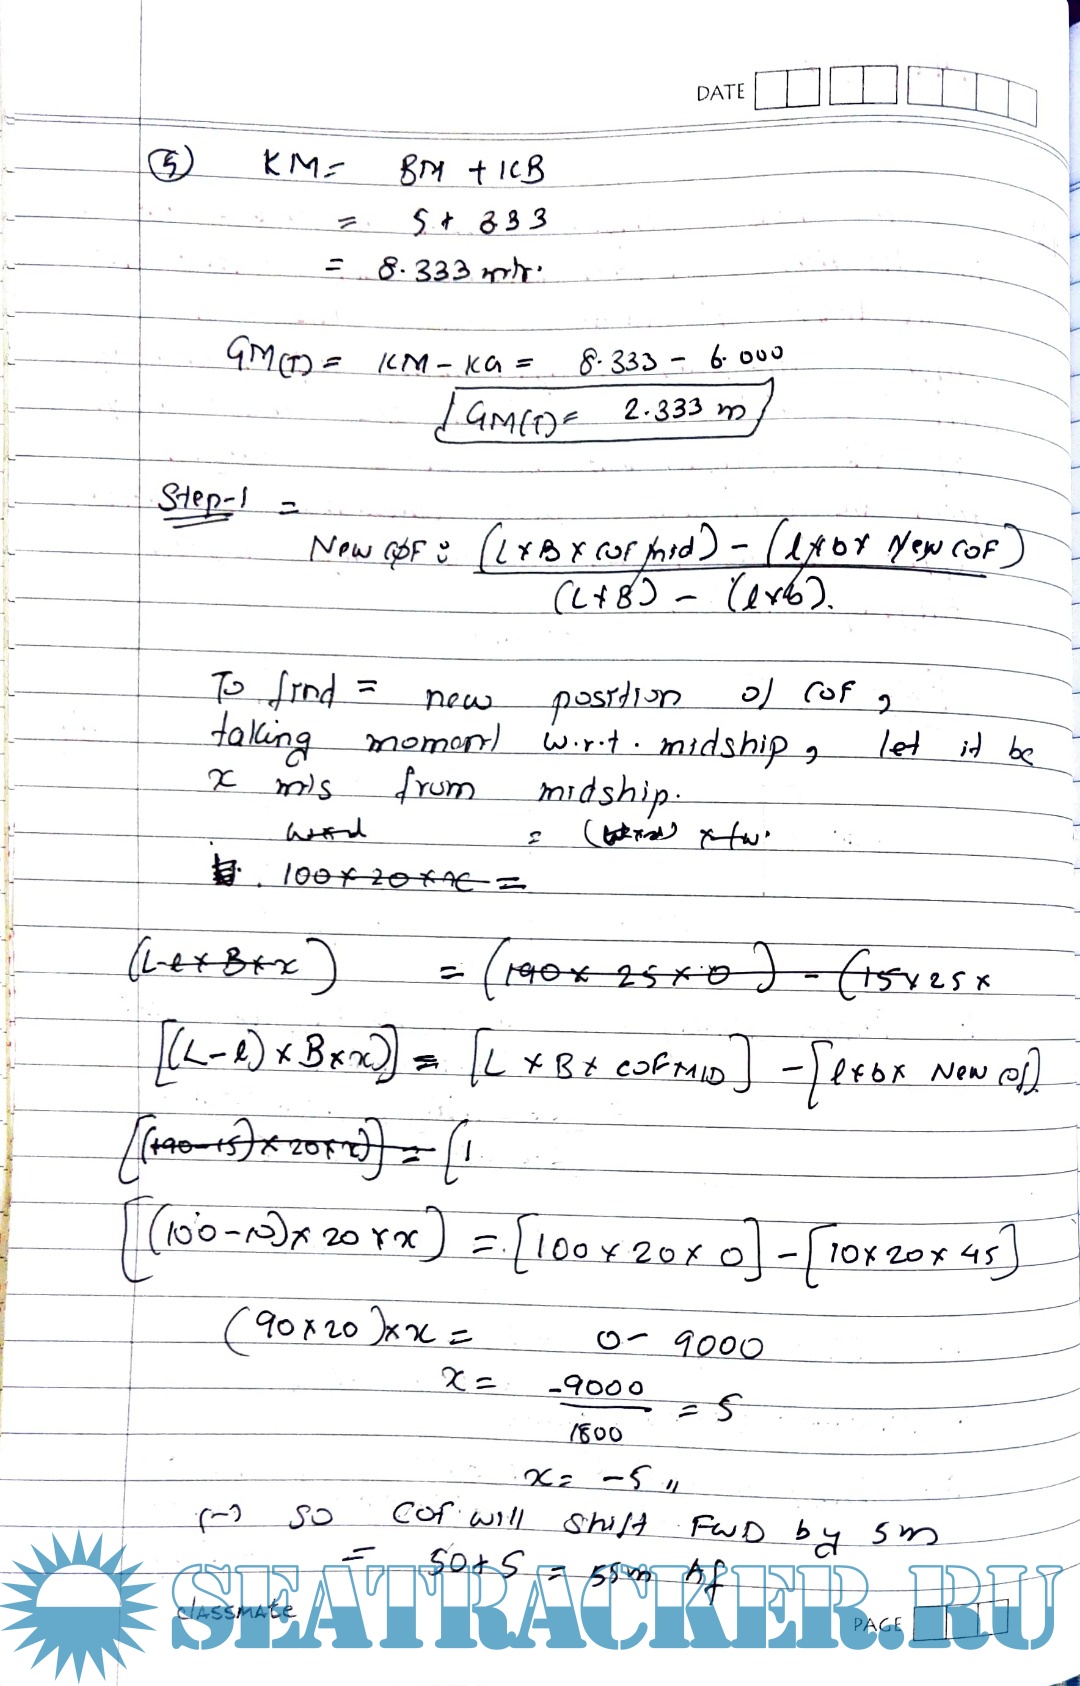 DATE
(5) KM = BM + KB
= 5 + 333
= 8.333 mtr.
GM(T) = KM - KG = 8.333 - 6.000
GM(T) = 2.333 m
Step-1 =
New COF : (L × B × COF mid) - (l × b × New COF)
(L × B) - (l × b).
To find = new position of COF,
taking moment w.r.t. midship, let it be
x mts from midship.
= x
100 × 20 × x =
(L-l × B × x) = (190 × 25 × 0) - (15 × 25 ×
[(L-l) × B × x)] = [L × B × COF MID] - [l × b × New cof]
[(190-15) × 20 × x)] = [1
[(100-10) × 20 × x] = [100 × 20 × 0] - [10 × 20 × 45]
(90 × 20) × x = 0 - 9000
x = -9000 = 5
1800
x = -5 "
(-) so COF will shift FWD by 5m
= 50 + 5 = 55m Af
SEATRACKER.RU
classmate
PAGE